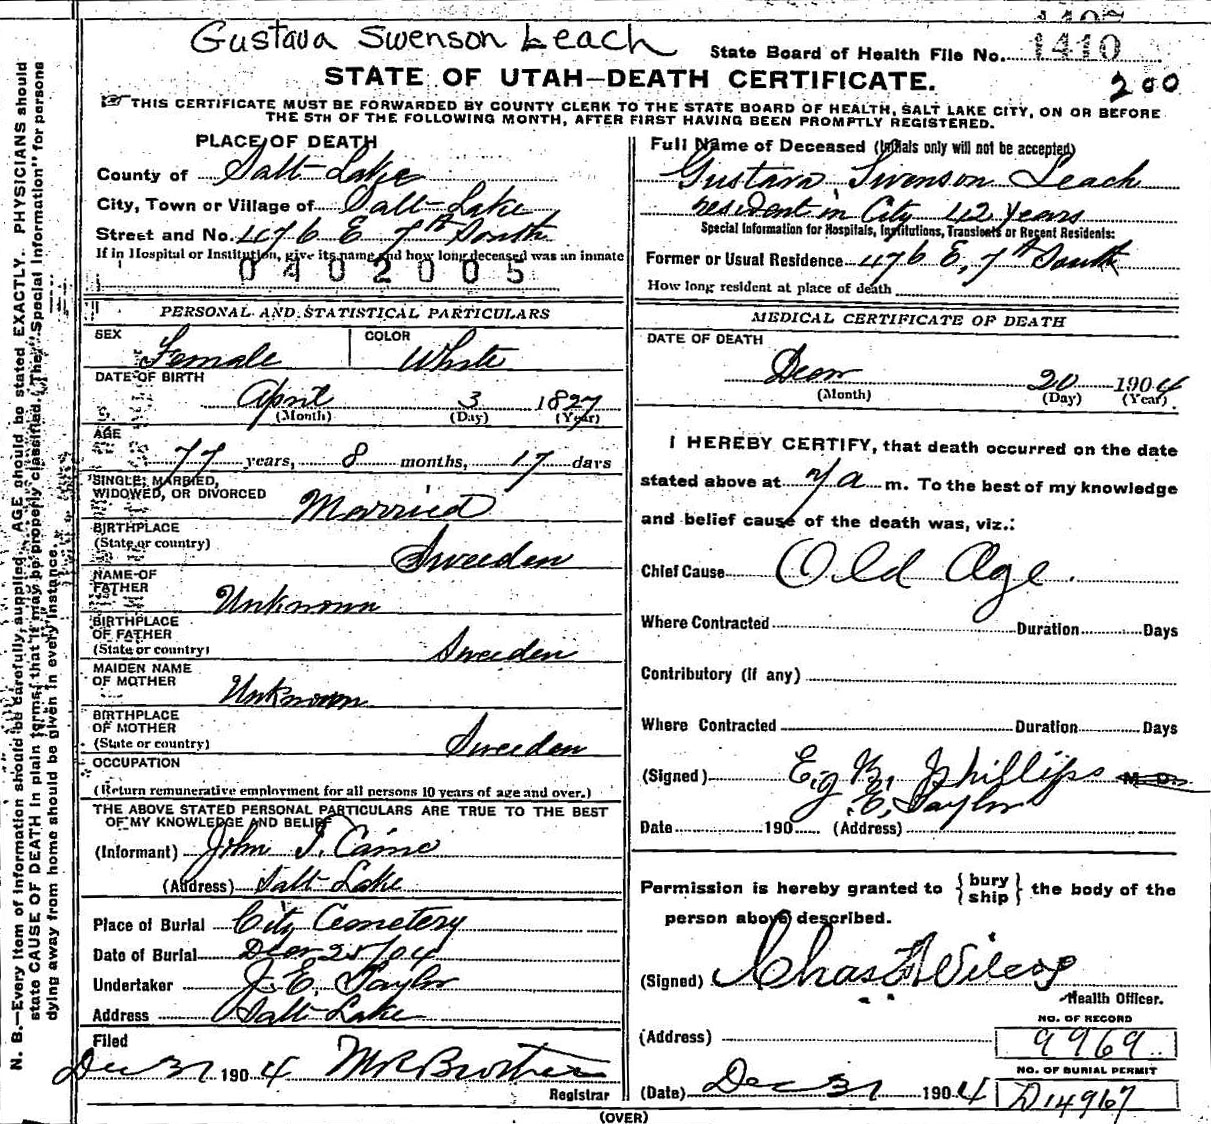 Gustava Swenson Leach
State Board of Health File No. 1410
STATE OF UTAH—DEATH CERTIFICATE.
200
THIS CERTIFICATE MUST BE FORWARDED BY COUNTY CLERK TO THE STATE BOARD OF HEALTH, SALT LAKE CITY, ON OR BEFORE
THE 5TH OF THE FOLLOWING MONTH, AFTER FIRST HAVING BEEN PROMPTLY REGISTERED.
PLACE OF DEATH
County of Salt Lake
City, Town or Village of Salt Lake
Street and No. 476 E 7th South
If in Hospital or Institution, give its name and how long deceased was an inmate
0402005
Full Name of Deceased (Initials only will not be accepted)
Gustava Swenson Leach
resident in City 42 Years
Special Information for Hospitals, Institutions, Transients or Recent Residents:
Former or Usual Residence 476 E, 7th South
How long resident at place of death
PERSONAL AND STATISTICAL PARTICULARS
SEX Female
COLOR White
DATE OF BIRTH
April 3 1827
(Month) (Day) (Year)
AGE
77 years, 8 months, 17 days
SINGLE, MARRIED,
WIDOWED, OR DIVORCED Married
BIRTHPLACE
(State or country) Sweeden
NAME OF
FATHER Unknown
BIRTHPLACE
OF FATHER
(State or country) Sweeden
MAIDEN NAME
OF MOTHER Unknown
BIRTHPLACE
OF MOTHER
(State or country) Sweeden
OCCUPATION
(Return remunerative employment for all persons 10 years of age and over.)
THE ABOVE STATED PERSONAL PARTICULARS ARE TRUE TO THE BEST
OF MY KNOWLEDGE AND BELIEF
(Informant) John T. Caine
(Address) Salt Lake
Place of Burial City Cemetery
Date of Burial Decr 25/04
Undertaker J. E. Taylor
Address Salt Lake
Filed
Dec 31 1904
Registrar
MEDICAL CERTIFICATE OF DEATH
DATE OF DEATH
Decr 20 1904
(Month) (Day) (Year)
I HEREBY CERTIFY, that death occurred on the date
stated above at a m. To the best of my knowledge
and belief cause of the death was, viz.:
Chief Cause Old Age.
Where Contracted Duration Days
Contributory (if any)
Where Contracted Duration Days
(Signed) Phillips M. D.
Taylor
Date 190 (Address)
Permission is hereby granted to {bury ship} the body of the
person above described.
(Signed) Chas Wilcox
Health Officer.
(Address)
NO. OF RECORD
9969
NO. OF BURIAL PERMIT
D14967
(Date) Dec 31 1904
(OVER)
N. B.—Every item of information should be carefully supplied. AGE should be stated EXACTLY. PHYSICIANS should
state CAUSE OF DEATH in plain terms, that it may be properly classified. The "Special Information" for persons
dying away from home should be given in every instance.